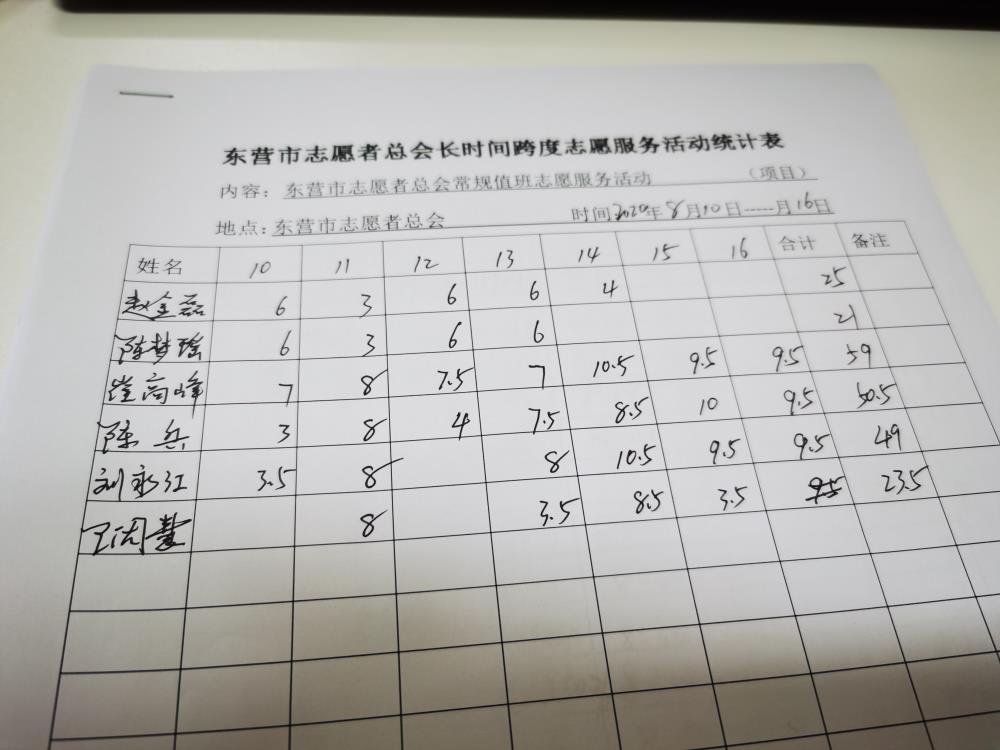 东营市志愿者总会长时间跨度志愿服务活动统计表
内容： 东营市志愿者总会常规值班志愿服务活动 （项目）
地点：东营市志愿者总会 时间2020年8月10日-----月16日
姓名 10 11 12 13 14 15 16 合计 备注
赵金磊 6 3 6 6 4 25
陈梦瑶 6 3 6 6 21
高峰 7 8 7.5 7 10.5 9.5 9.5 59
陈兵 3 8 4 7.5 8.5 10 9.5 50.5
刘永江 3.5 8 8 10.5 9.5 9.5 49
王闵慧 8 3.5 8.5 3.5 23.5